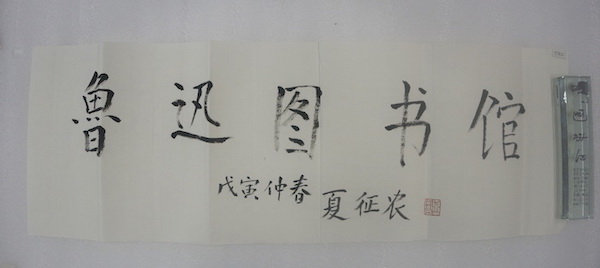 鲁迅图书馆
戊寅仲春 夏征农